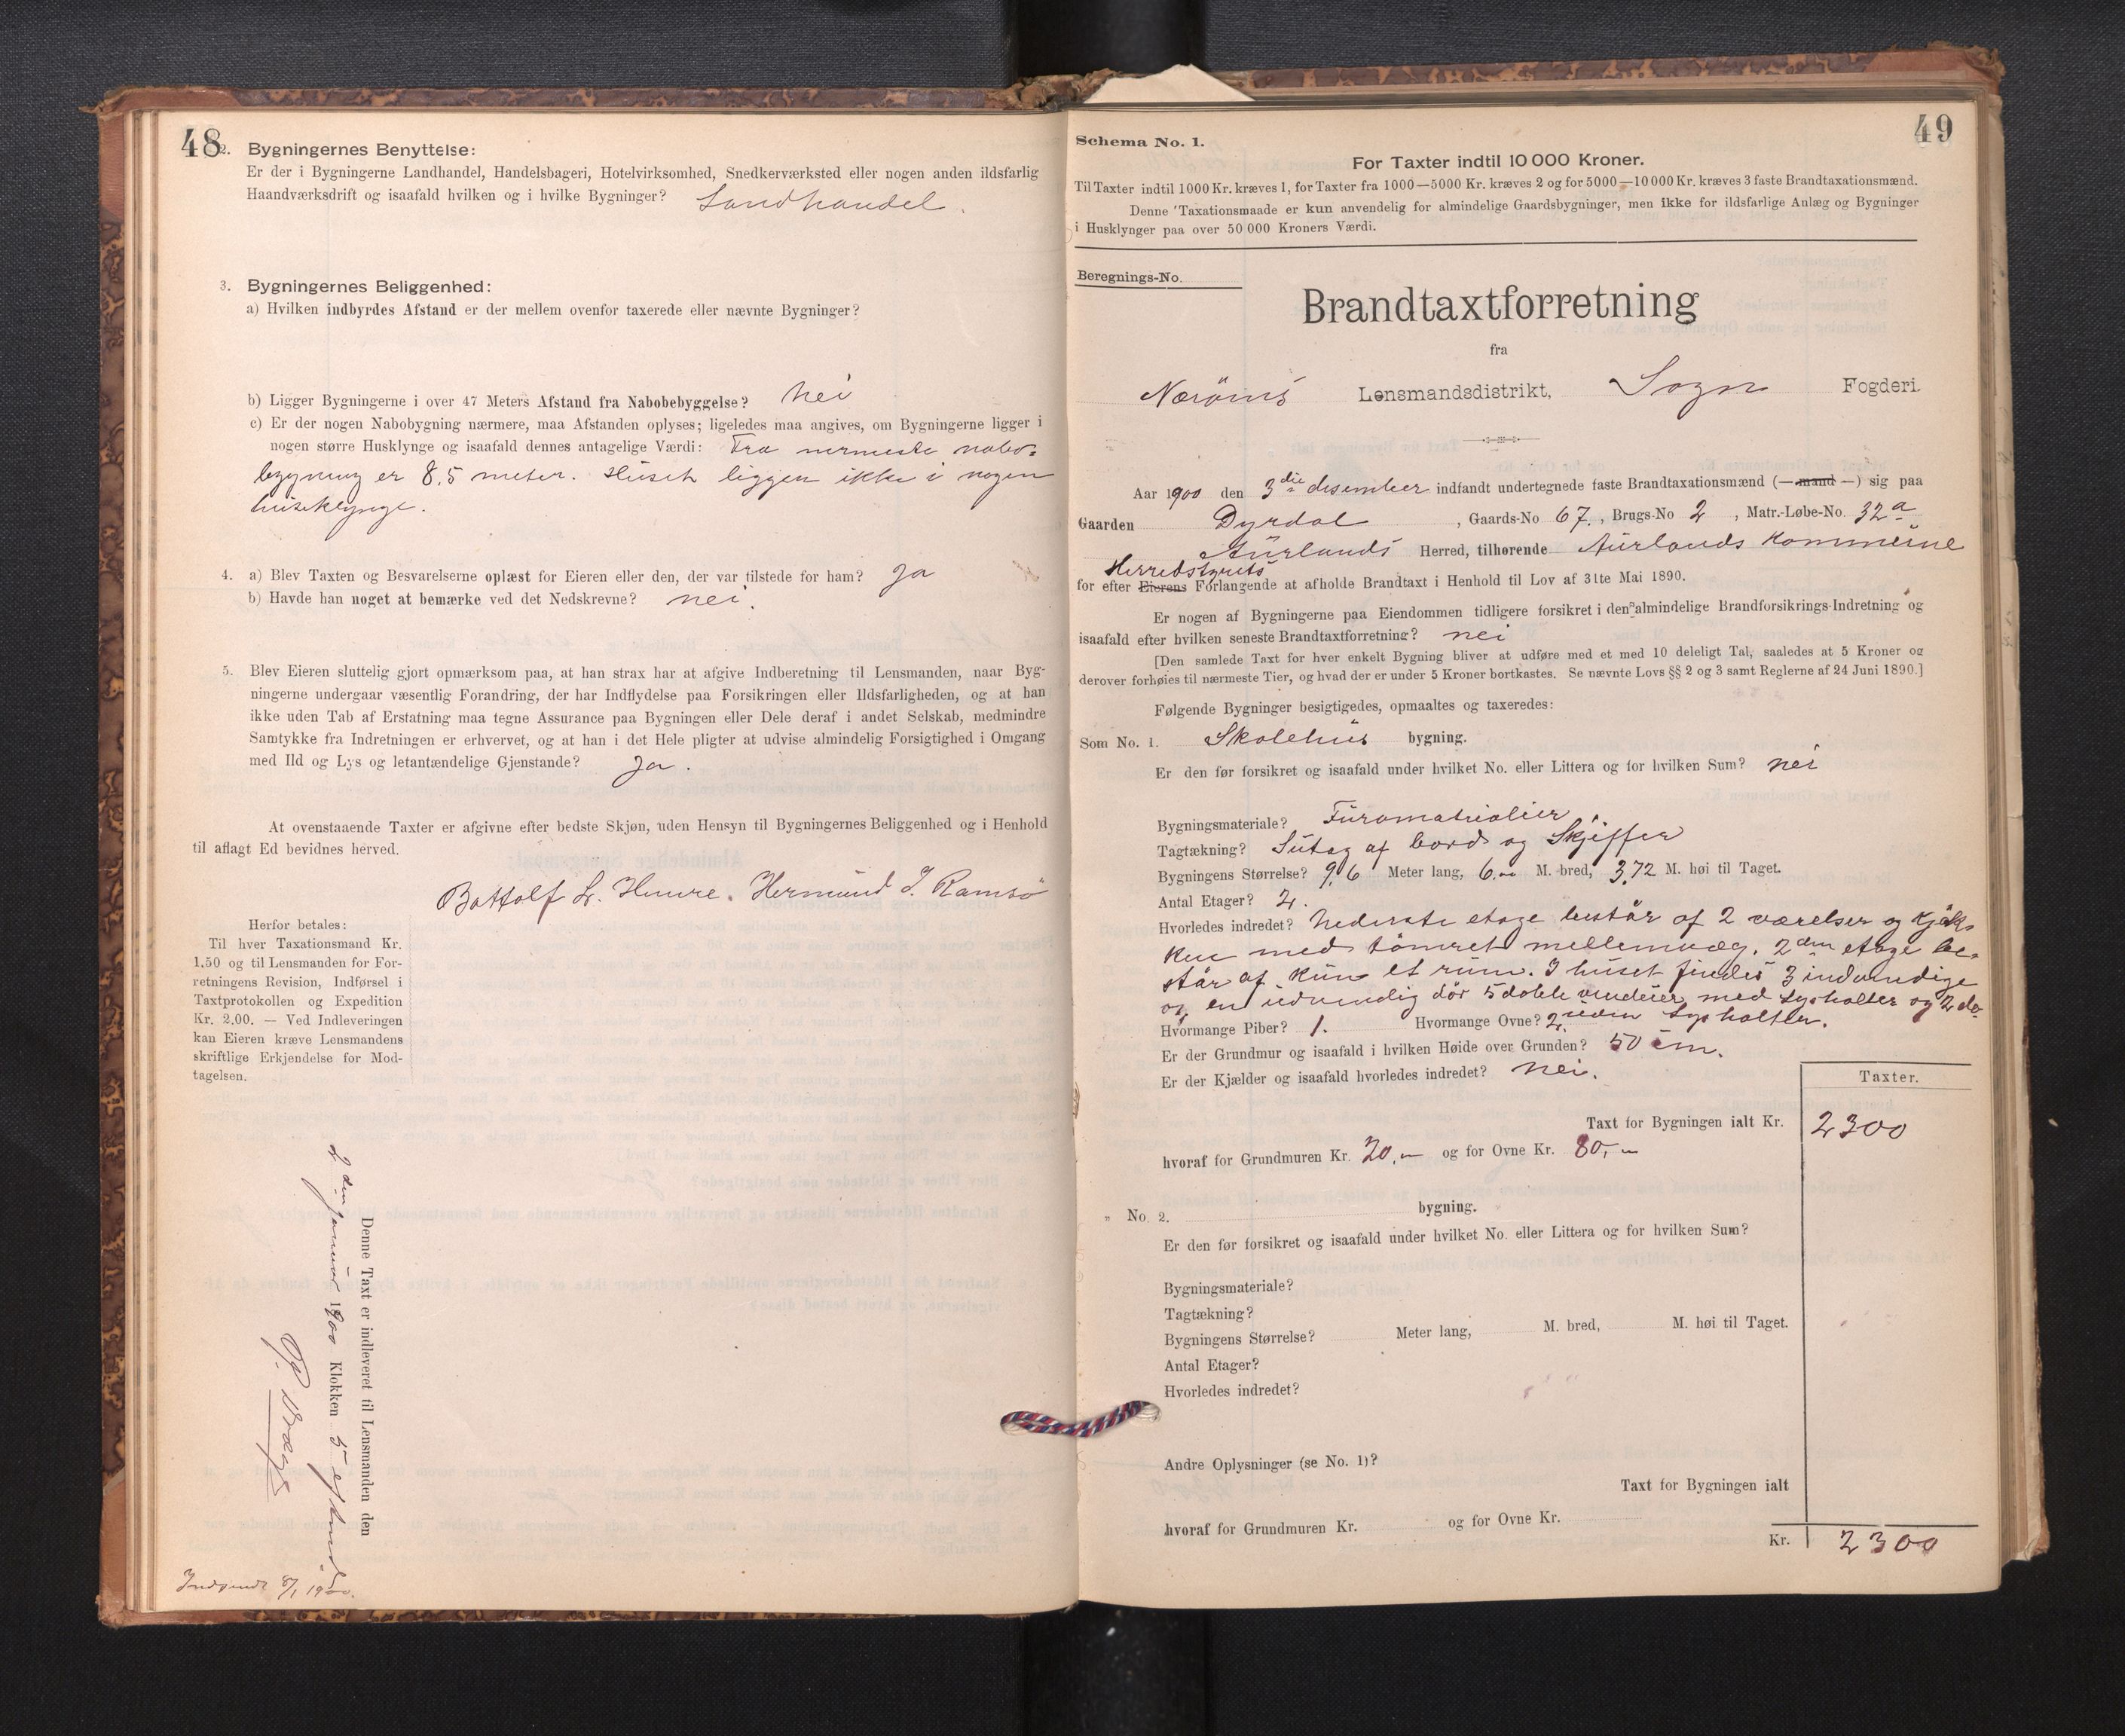 48
2. Bygningernes Benyttelse:
Er der i Bygningerne Landhandel, Handelsbageri, Hotelvirksomhed, Snedkerværksted eller nogen anden ildsfarlig
Haandværksdrift og isaafald hvilken og i hvilke Bygninger? Landhandel.
3. Bygningernes Beliggenhed:
a) Hvilken indbyrdes Afstand er der mellem ovenfor taxerede eller nævnte Bygninger?
b) Ligger Bygningerne i over 47 Meters Afstand fra Nabobebyggelse? Nei
c) Er der nogen Nabobygning nærmere, maa Afstanden oplyses; ligeledes maa angives, om Bygningerne ligger i
nogen større Husklynge og isaafald dennes antagelige Værdi: Fra nermeste nabo=
bygning er 8,5 meter. Huset ligger ikke i nogen
huseklynge.
4. a) Blev Taxten og Besvarelserne oplæst for Eieren eller den, der var tilstede for ham? Ja
b) Havde han noget at bemærke ved det Nedskrevne? nei.
5. Blev Eieren sluttelig gjort opmærksom paa, at han strax har at afgive Indberetning til Lensmanden, naar Byg-
ningerne undergaar væsentlig Forandring, der har Indflydelse paa Forsikringen eller Ildsfarligheden, og at han
ikke uden Tab af Erstatning maa tegne Assurance paa Bygningen eller Dele deraf i andet Selskab, medmindre
Samtykke fra Indretningen er erhvervet, og at han i det Hele pligter at udvise almindelig Forsigtighed i Omgang
med Ild og Lys og letantændelige Gjenstande? Ja.
At ovenstaaende Taxter er afgivne efter bedste Skjøn, uden Hensyn til Bygningernes Beliggenhed og i Henhold
til aflagt Ed bevidnes herved.
Bottolf L. Hemre. Hermund J. Ramsö
Herfor betales:
Til hver Taxationsmand Kr.
1,50 og til Lensmanden for For-
retningens Revision, Indførsel i
Taxtprotokollen og Expedition
Kr. 2,00. — Ved Indleveringen
kan Eieren kræve Lensmandens
skriftlige Erkjendelse for Mod-
tagelsen.
Denne Taxt er indleveret til Lensmanden den
2den januar 1900 Klokken 5 eftmd
Indsendt 8/1 1900.
49
Schema No. 1.
For Taxter indtil 10 000 Kroner.
Til Taxter indtil 1000 Kr. kræves 1, for Taxter fra 1000—5000 Kr. kræves 2 og for 5000—10 000 Kr. kræves 3 faste Brandtaxationsmænd.
Denne Taxationsmaade er kun anvendelig for almindelige Gaardsbygninger, men ikke for ildsfarlige Anlæg og Bygninger
i Husklynger paa over 50 000 Kroners Værdi.
Beregnings-No.
Brandtaxtforretning
fra
Nærøens Lensmandsdistrikt, Sogn Fogderi.
Aar 1900 den 3die desember indfandt undertegnede faste Brandtaxationsmænd (— mand —) sig paa
Gaarden Dyrdal, Gaards-No 67., Brugs-No 2, Matr.-Løbe-No. 32a
Aurlands Herred, tilhørende Aurlands Kommune
Herredstyrets
for efter Eierens Forlangende at afholde Brandtaxt i Henhold til Lov af 31te Mai 1890.
Er nogen af Bygningerne paa Eiendommen tidligere forsikret i den almindelige Brandforsikrings-Indretning og
isaafald efter hvilken seneste Brandtaxtforretning? nei
[Den samlede Taxt for hver enkelt Bygning bliver at udføre med et med 10 deleligt Tal, saaledes at 5 Kroner og
derover forhøies til nærmeste Tier, og hvad der er under 5 Kroner bortkastes. Se nævnte Lovs §§ 2 og 3 samt Reglerne af 24 Juni 1890.]
Følgende Bygninger besigtigedes, opmaaltes og taxeredes:
Som No. 1. Skolehus bygning.
Er den før forsikret og isaafald under hvilket No. eller Littera og for hvilken Sum? nei
Bygningsmateriale? Furumatrialier
Tagtækning? Sutag af bord og Skjiffer
Bygningens Størrelse? 9,6 Meter lang, 6,00 M. bred, 3,72 M. høi til Taget.
Antal Etager? 2.
Hvorledes indredet? Nederste etage består af 2 værelser og Kjøk-
ken med tömret mellemvæg. 2den etage be-
står af kun et rum. I huset findes 3 indvendige
og en udvendig dör 5 doble vinduer med Lysholter og 2 do
uden Lysholter.
Hvormange Piber? 1. Hvormange Ovne? 2.
Er der Grundmur og isaafald i hvilken Høide over Grunden? 50 cm.
Er der Kjælder og isaafald hvorledes indredet? Nei.
Taxter.
Taxt for Bygningen ialt Kr. 2300
hvoraf for Grundmuren Kr. 20,— og for Ovne Kr. 80,—
" No. 2. bygning.
Er den før forsikret og isaafald under hvilket No. eller Littera og for hvilken Sum?
Bygningsmateriale?
Tagtækning?
Bygningens Størrelse? Meter lang, M. bred, M. høi til Taget.
Antal Etager?
Hvorledes indredet?
Andre Oplysninger (se No. 1)?
Taxt for Bygningen ialt
hvoraf for Grundmuren Kr. og for Ovne Kr.
Kr. 2300